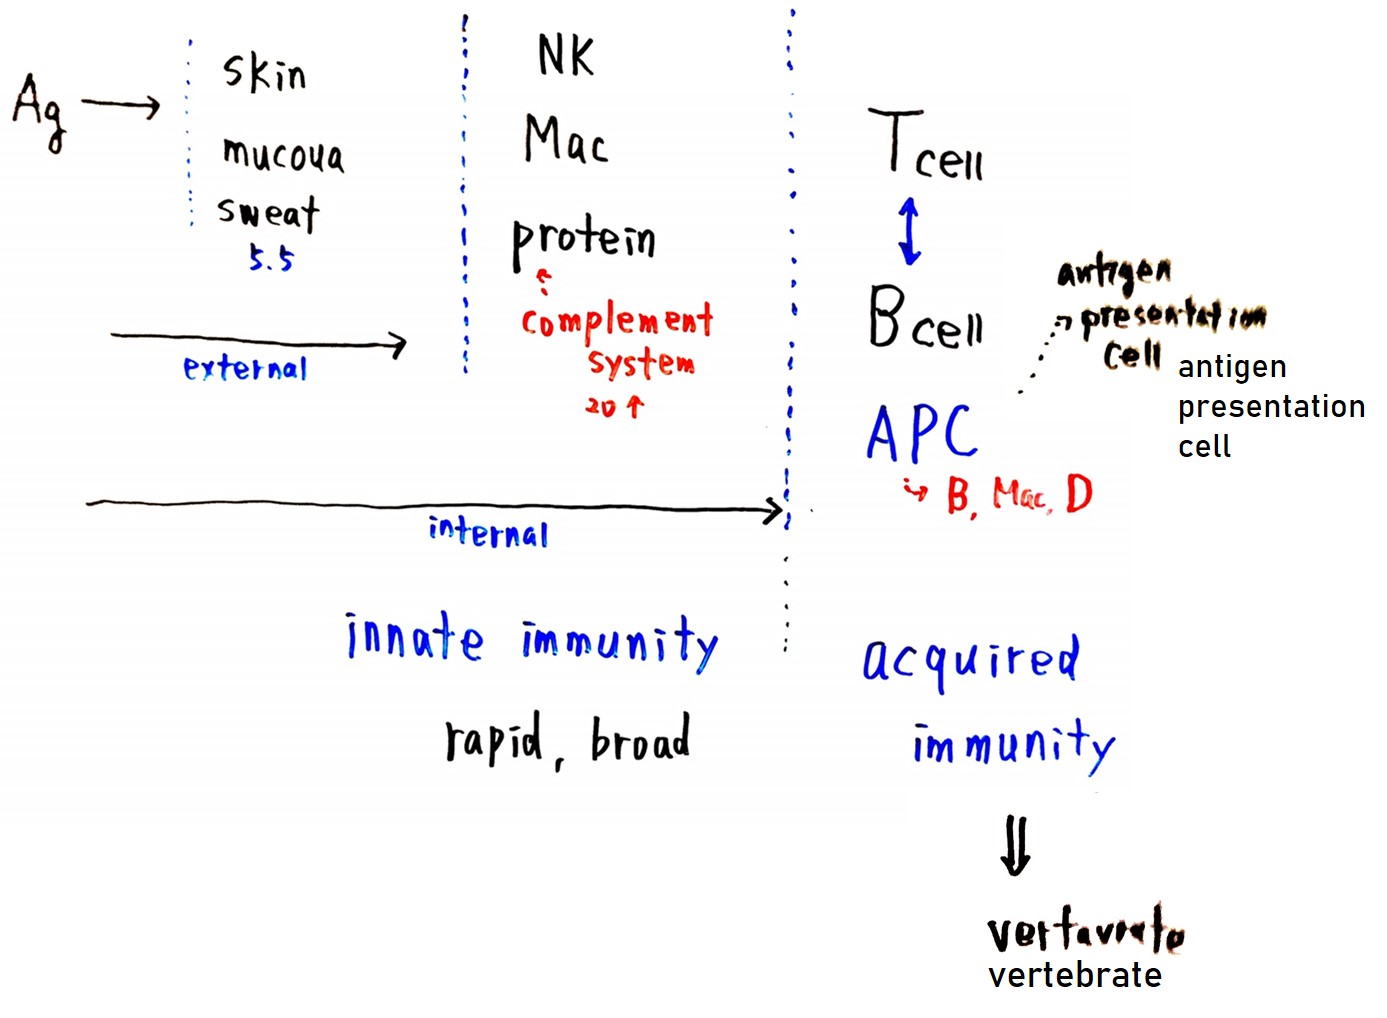 Ag
skin
mucoua
sweat
5.5
external
NK
Mac
protein
complement
system
20 ↑
internal
innate immunity
rapid, broad
T cell
B cell
APC
B, Mac, D
antigen
presentation
cell
antigen
presentation
cell
acquired
immunity
vertavrate
vertebrate